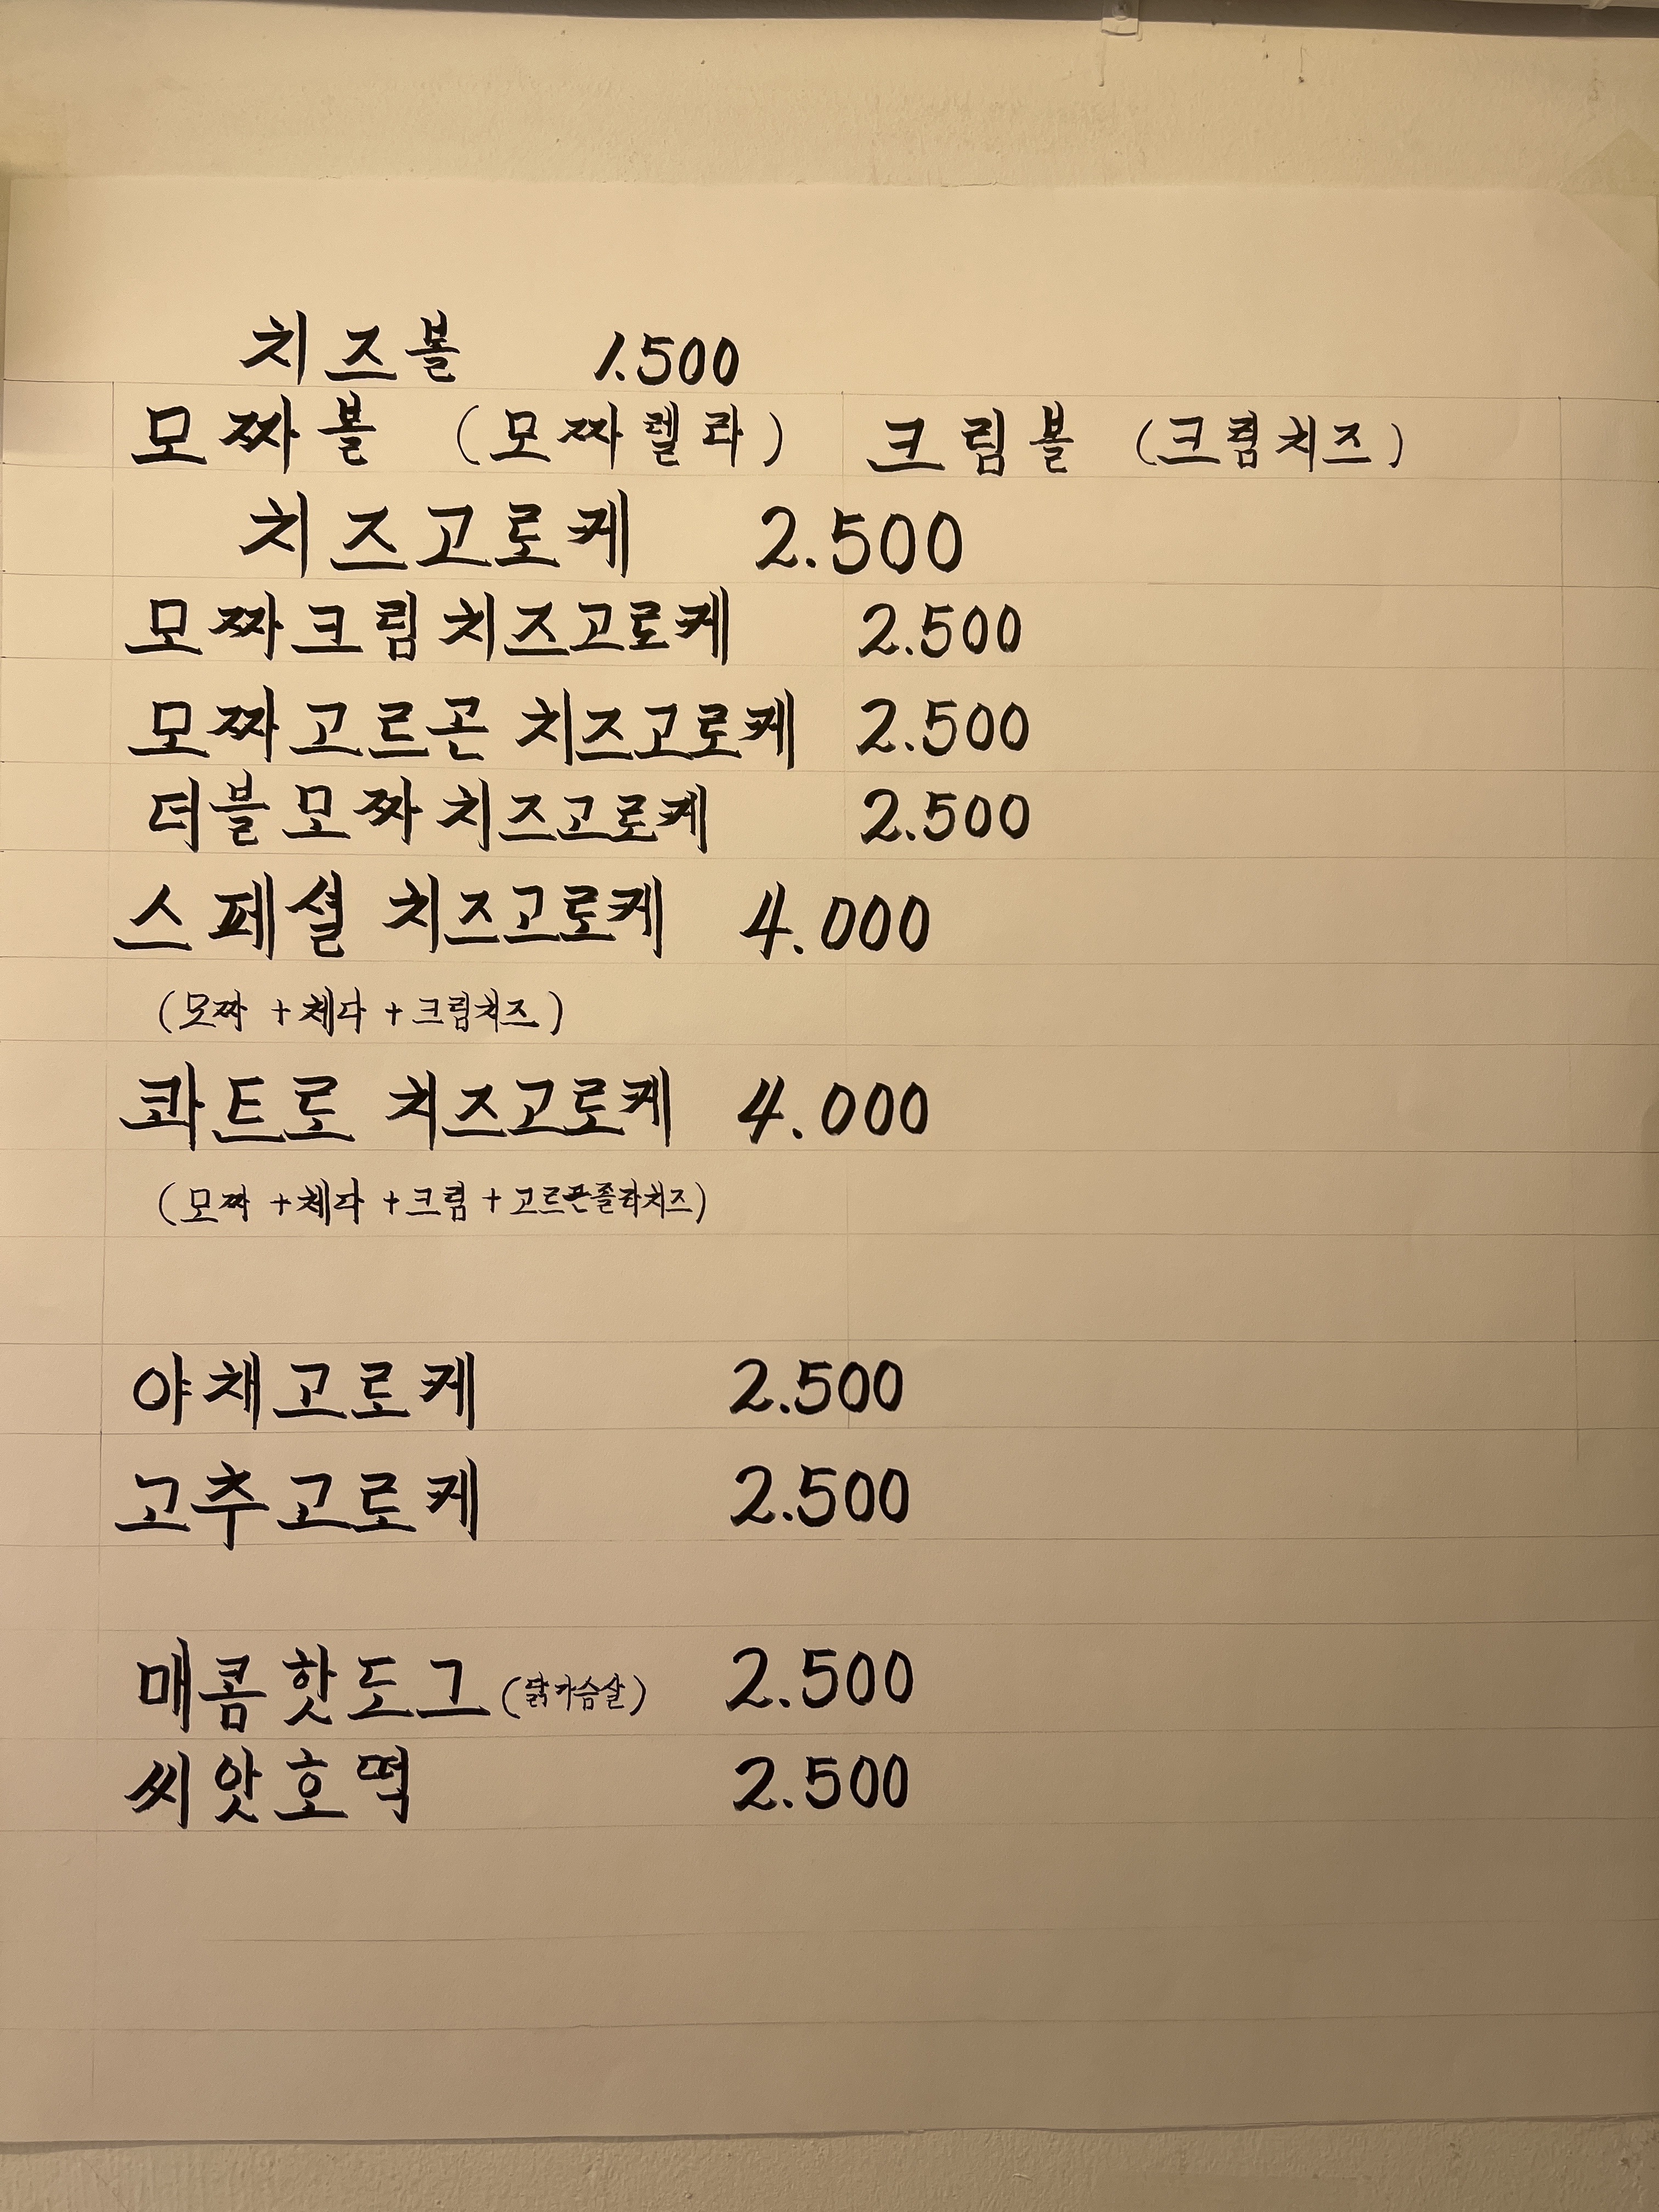 치즈볼 1.500
모짜볼 (모짜렐라) 크림볼 (크림치즈)
치즈고로케 2.500
모짜크림치즈고로케 2.500
모짜고르곤 치즈고로케 2.500
더블모짜치즈고로케 2.500
스페셜 치즈고로케 4.000
(모짜 +체다 +크림치즈)
콰트로 치즈고로케 4.000
(모짜 +체다 +크림 +고르곤졸라치즈)
야채고로케 2.500
고추고로케 2.500
매콤핫도그 (닭가슴살) 2.500
씨앗호떡 2.500